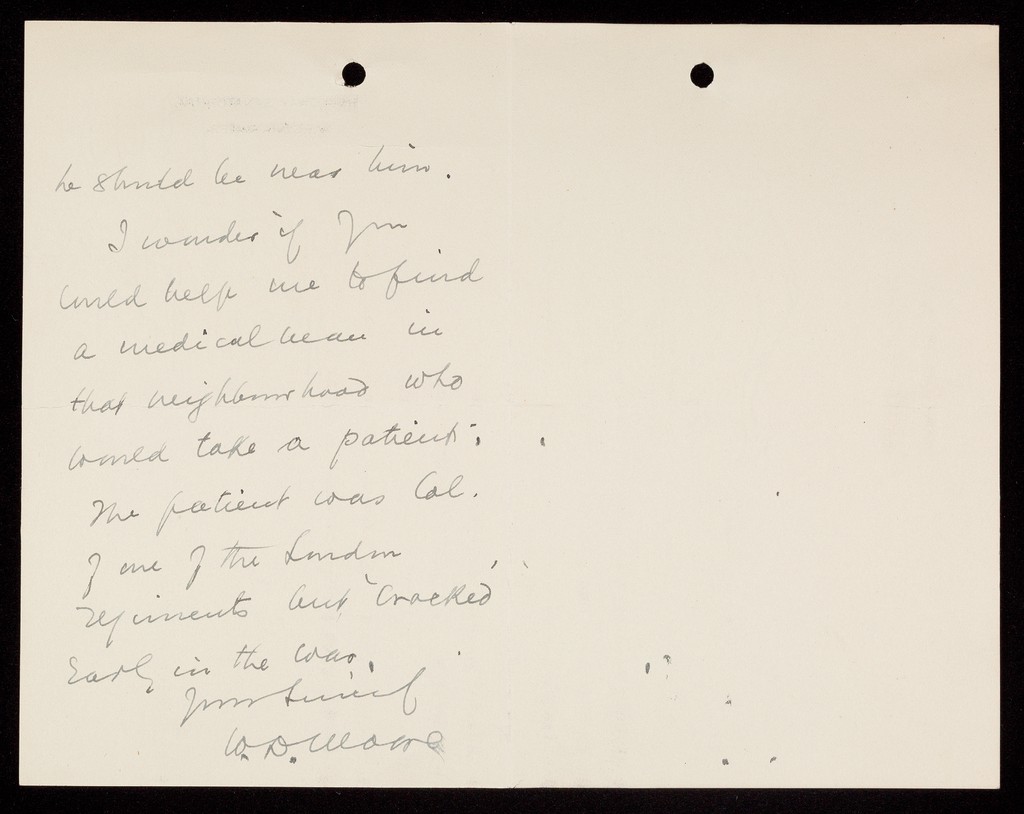 he should be near him.
I wonder if you
could help me to find
a medical man in
that neighbourhood who
would take a patient.
The patient was Col.
of one of the London
regiments but "cracked"
early in the war.
Yours sincerely
W. D. Moore